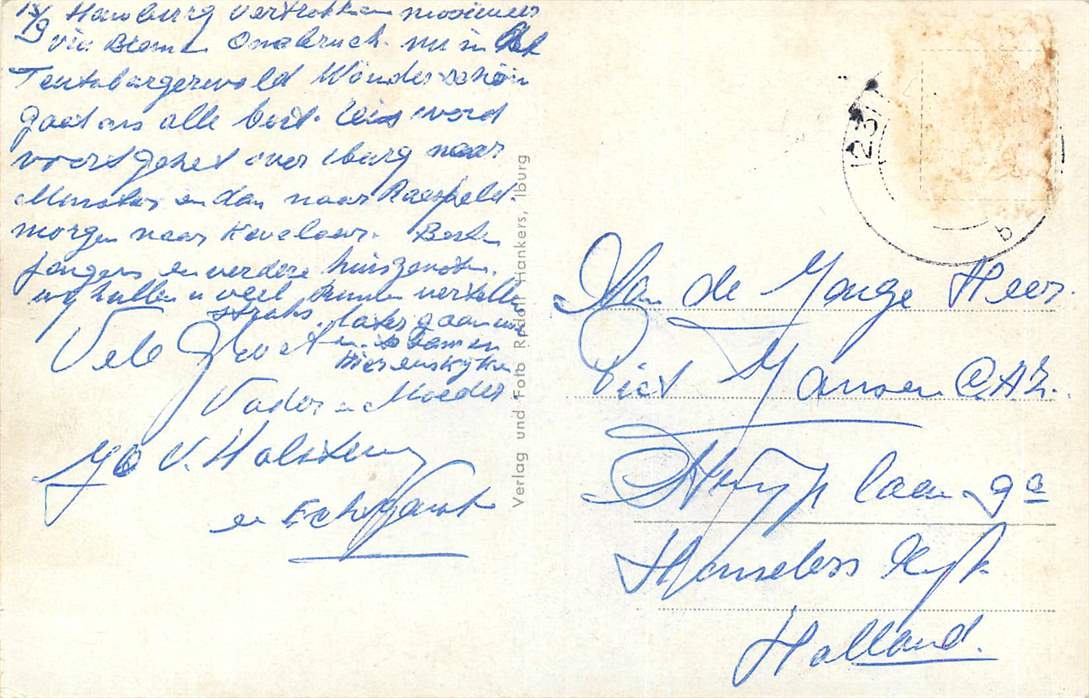 15/9 Hamburg vertrokken mooi weer
via Bremen Osnabruch. nu in het
Teutobergerwold Wonderschön
gaat ons alle best. reis word
voortgezet over Iburg naar
Munster en dan naar Raesfeld.
morgen naar Kevelaer. Beste
jongens en verdere huisgenoten.
wy zullen u veel kunnen vertelle
straks, later gaan we
samen
Vele Groeten
Vader en Moeder
Jo v. Holsteyn
en Echtgenoot
Verlag und Foto Rudolf Hankers, Iburg
23
b
Aan de Jonge Heer.
Piet Jansen C.A.Z.
Stryp laan 9a
Honselers Dyk
Holland.